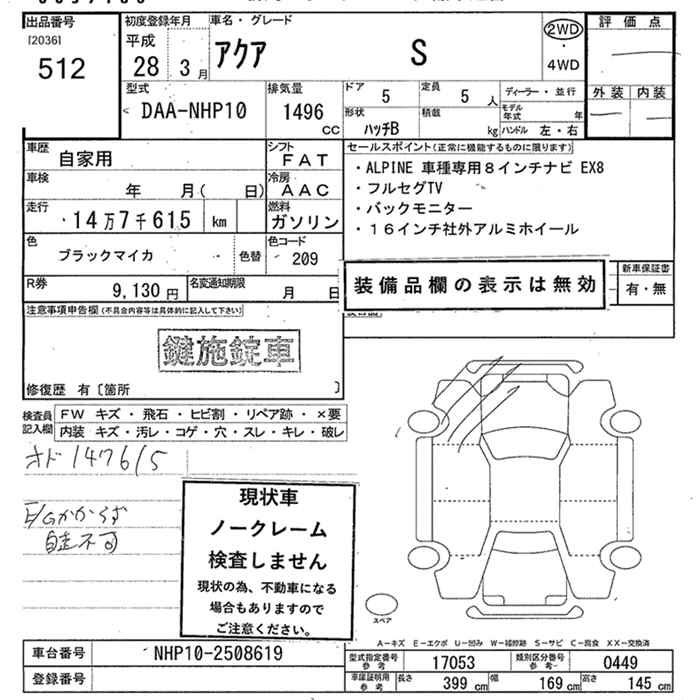 出品番号 初度登録年月 車名・グレード 評価点
[2036] 平成
512 28 3月 アクア S 2WD・4WD
外装 内装
型式 排気量 ドア 5 定員 5人 ディーラー・並行
DAA-NHP10 1496 CC 形状 ハッチB 積載 kg モデル年式 年
ハンドル 左・右
車歴 自家用 シフト FAT
車検 年 月( 日) 冷房 AAC
走行 14万7千615 km 燃料 ガソリン
色 ブラックマイカ 色替 色コード 209
R券 9,130円 名変通知期限 月 日
セールスポイント(正常に機能するものに限ります)
・ALPINE 車種専用8インチナビ EX8
・フルセグTV
・バックモニター
・16インチ社外アルミホイール
装備品欄の表示は無効
新車保証書
有・無
注意事項申告欄(不具合内容等は具体的に記入して下さい)
鍵施錠車
修復歴 有〔箇所 〕
検査員記入欄 FW キズ・飛石・ヒビ割・リペア跡・×要
内装 キズ・汚レ・コゲ・穴・スレ・キレ・破レ
オド147615
E/Gかからず
自走不可
現状車
ノークレーム
検査しません
現状の為、不動車になる
場合もありますので
ご注意ください。
スペア
A-キズ E-エクボ U-凹み W-補修跡 S-サビ C-腐食 XX-交換済
車台番号 NHP10-2508619
登録番号
型式指定番号参考 17053 類別区分番号参考 0449
車庫証明用参考 長さ 399cm 幅 169cm 高さ 145cm